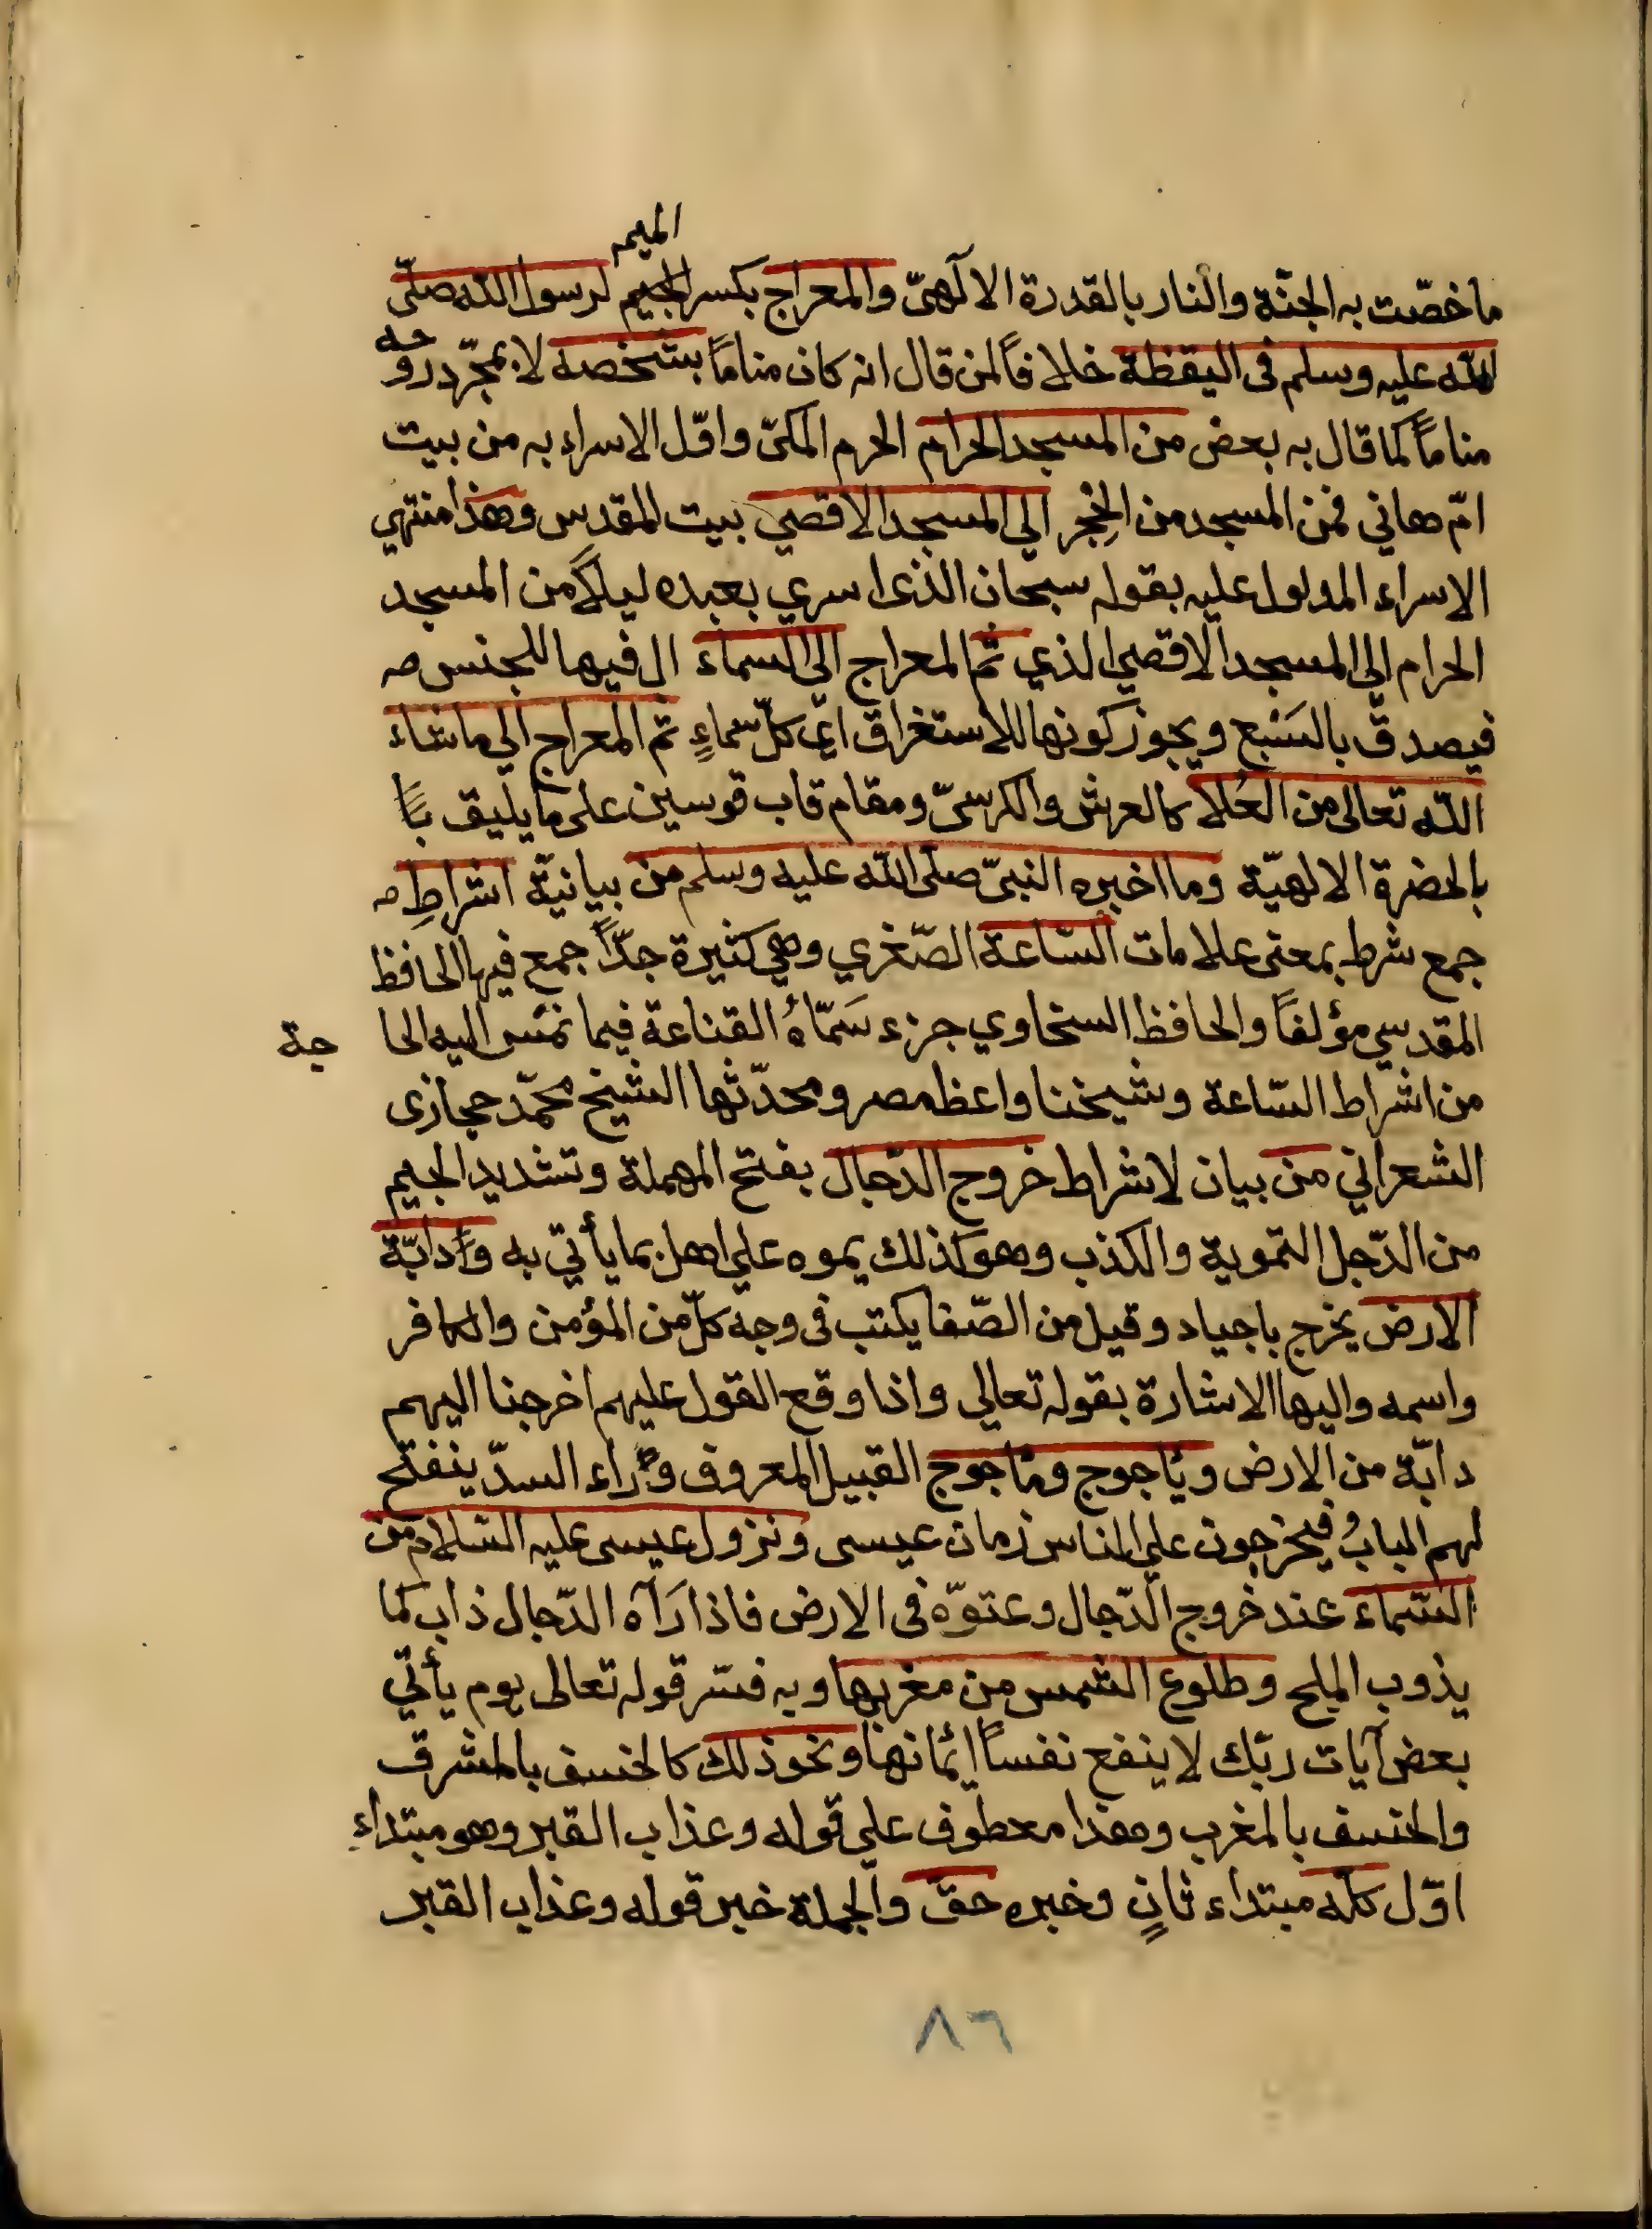 الميم
ما خصّت به الجنّة والنار بالقدرة الالٓهيّ والمعراج بكسر الجيم لرسول الله صلّى
الله عليه وسلم فى اليقظة خلافاً لمن قال انه كان مناماً بشخصه لا بمجّرد روحه
مناماً كما قال به بعض من المسجد الحرام الحرم المكىّ واوّل الاسراء به من بيت
امّ هاني فمن المسجد من الحِجر الي المسجد الاقصي بيت المقدس وهذا منتهي
الاسراء المدلول عليه بقوله سبحان الذى اسري بعبده ليلاً من المسجد
الحرام الي المسجد الاقصي الذي ثمّ المعراج الى السماء ال فيها للجنس
فيصدق بالسَبْع ويجوز كونها للاستغراق اي كلّ سماءٍ ثم المعراج الي ما شاء
الله تعالى من العُلا كالعرش والكرسيّ ومقام قاب قوسين على ما يليق با
بالحضرة الالهيّة وما اخبره النبىّ صلى الله عليه وسلم من بيانيّة اشراطِ
جمع شرط بمعنى علامات السّاعة الصّغري وهي كثيرة جدّاً جمع فيها الحافظ
المقدسي مؤلفاً والحافظ السخاوي جزء سَمّاهُ القناعة فيما تمّس اليه الحاجة
من اشراط السّاعة وشيخنا واعظ مصر ومحدّثها الشيخ محمّد حجازى
الشعراني من بيان لاشراط خروج الدّجال بفتح المهملة وتشديد الجيم
من الدّجل التموية والكذب وهو كذلك يموه علي اهل بما يأتي به ودابّة
الارض يخرج باجياد وقيل من الصّفا يكتب فى وجه كلّ من المؤمن والكافر
واسمه واليها الاشارة بقوله تعالي واذا وقع القول عليهم اخرجنا اليهم
دابّة من الارض ويأجوج ومأجوج القبيل المعروف وراء السدّ ينفتح
لهم البابُ فيخرجون علي الناس زمان عيسى ونزول عيسى عليه السّلام من
السّماء عند خروج الدّجال وعتوّه فى الارض فاذا رَآه الدّجال ذاب كما
يذوب الملح وطلوع الشمس من مغربها وبه فسّر قوله تعالى يوم يأتي
بعض آيات ربّك لا ينفع نفساً ايمانها ونحو ذلك كالخسف بالمشرق
والخسف بالمغرب وهذا معطوف علي قوله وعذاب القبر وهو مبتداء
اوّل كلّه مبتداء ثانٍ وخبره حقّ والجملة خبر قوله وعذاب القبر
٨٦